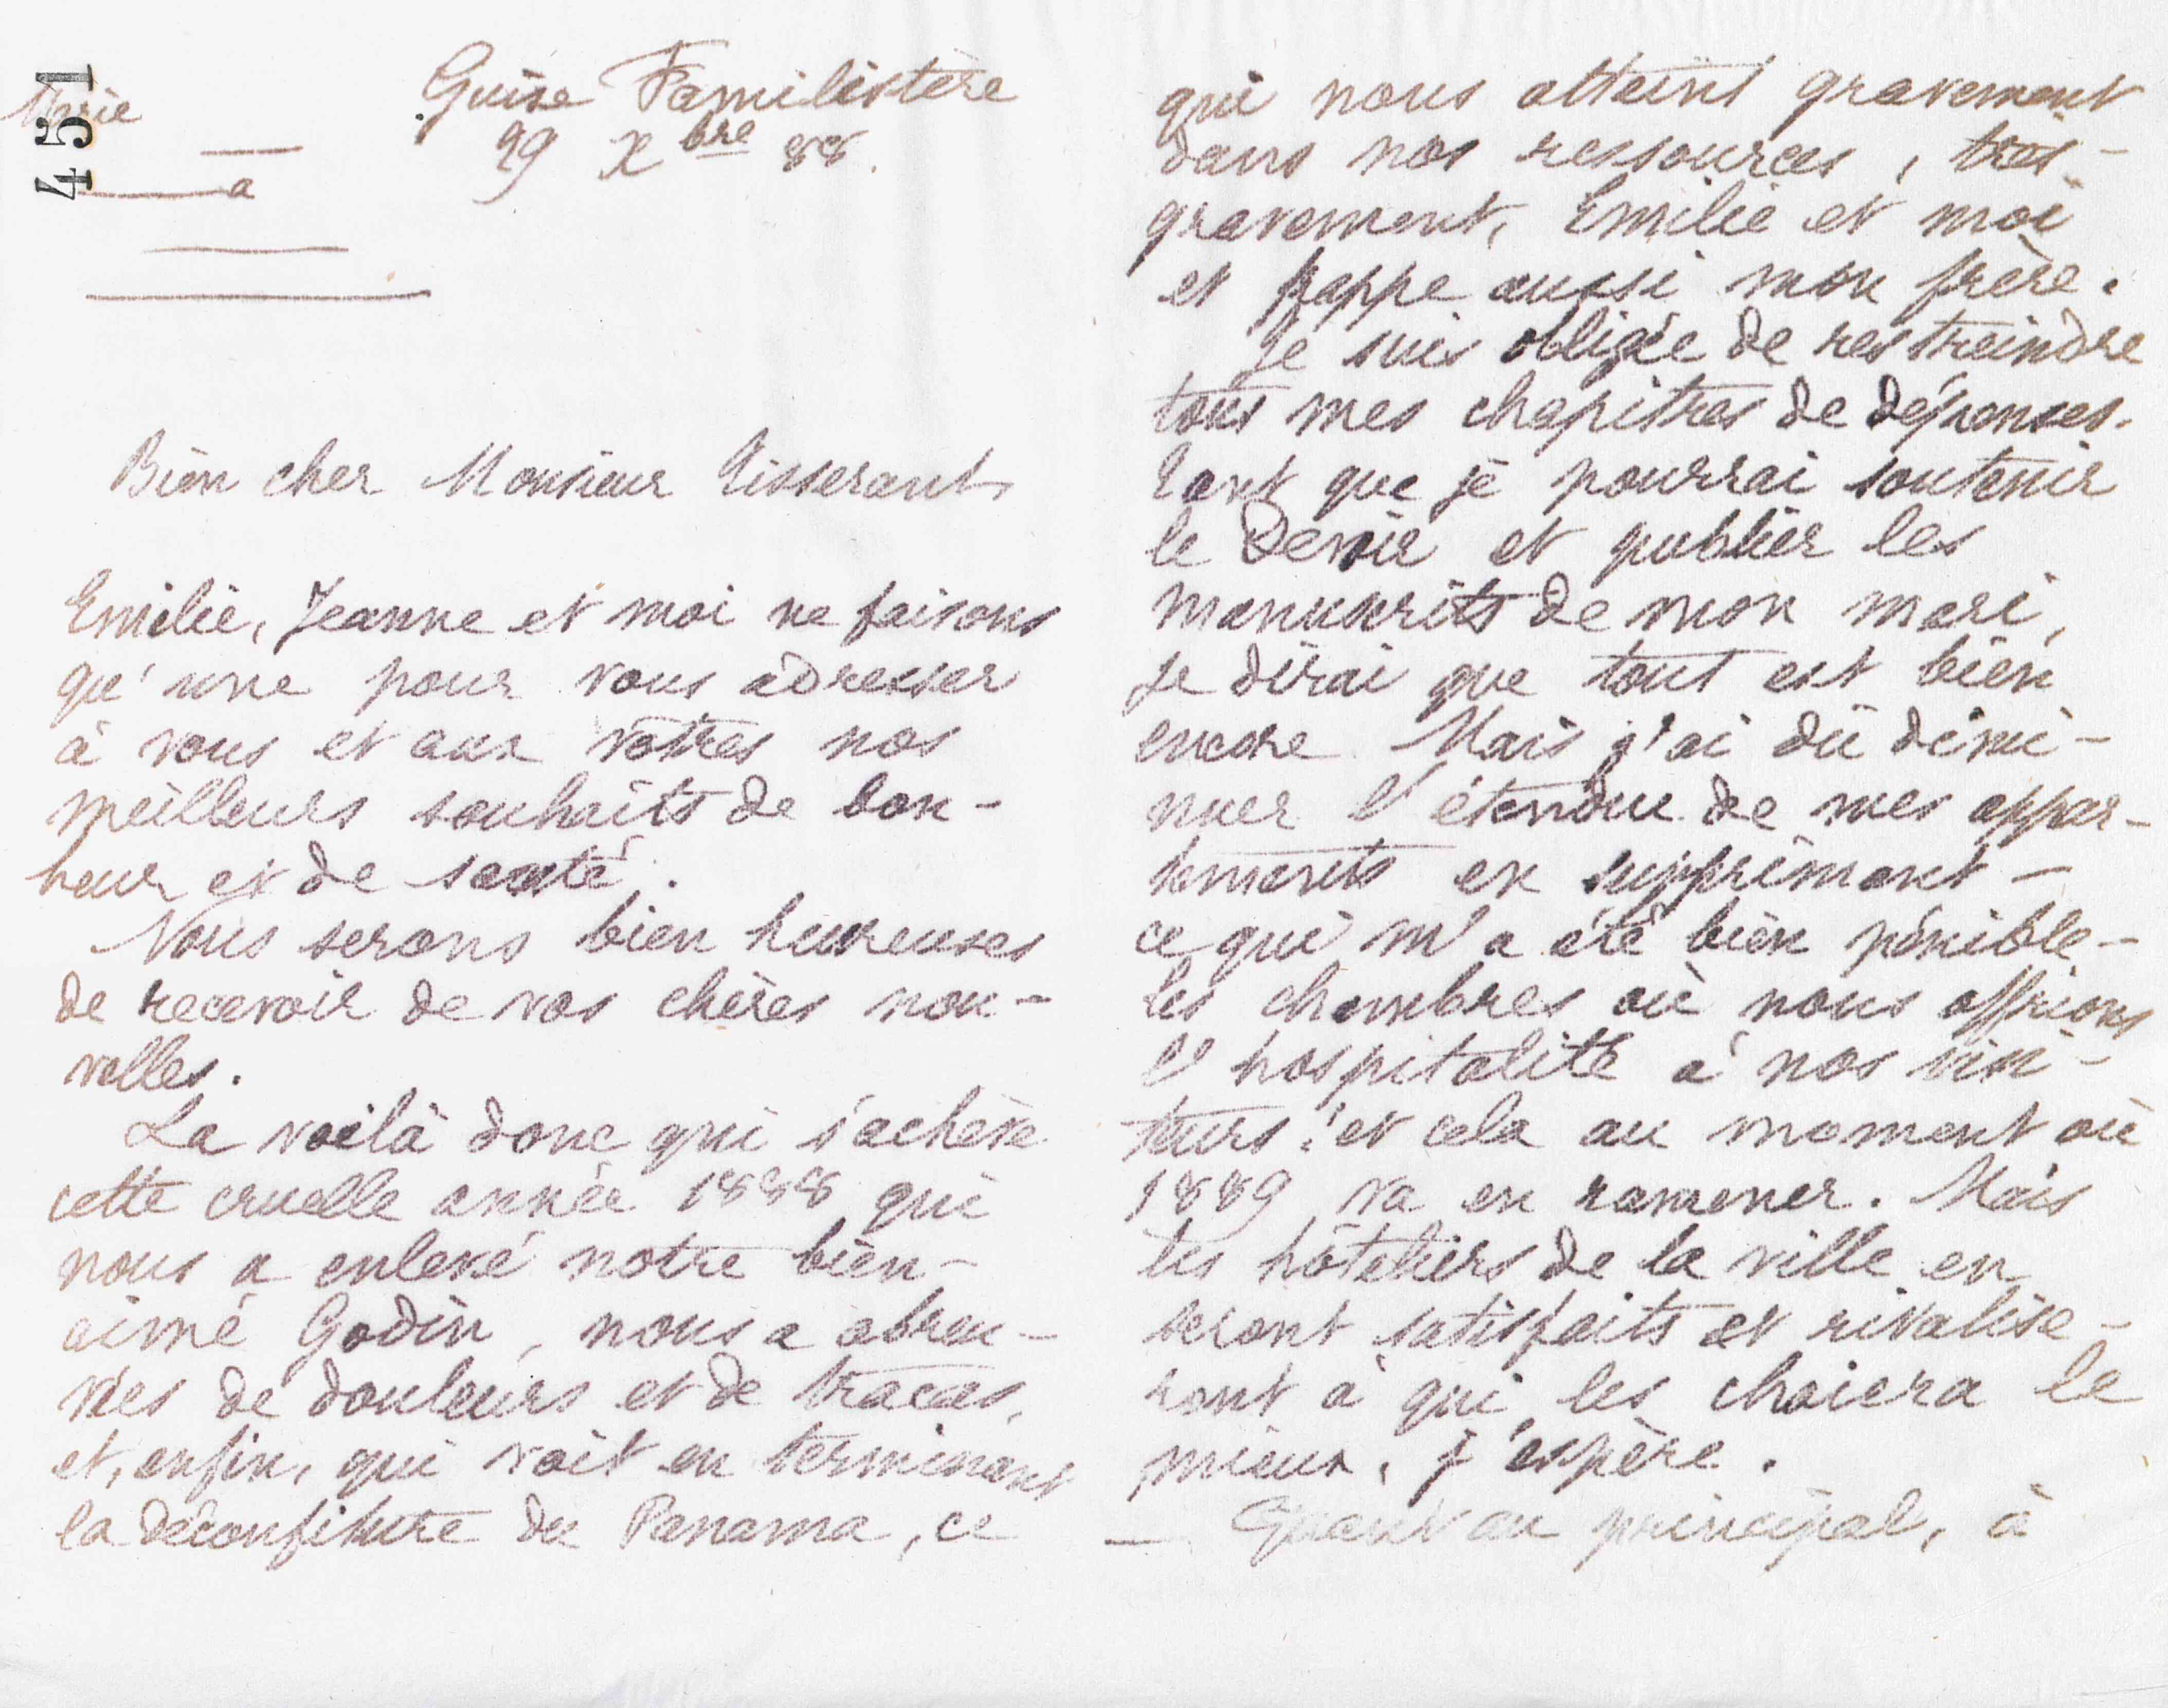 451
Marie
a
Guise Familistère
29 Xbre 88.
Bien cher Monsieur Tisserant
Emilie, Jeanne et moi ne faisons
qu'une pour vous adresser
à vous et aux vôtres nos
meilleurs souhaits de bon-
heur et de santé.
Nous serons bien heureuses
de recevoir de vos chères nou-
velles.
La voilà donc qui s'achève
cette cruelle année 1888 qui
nous a enlevé notre bien-
aimé Godin, nous a abreu-
vées de douleurs et de tracas,
et, enfin, qui voit en terminant
la déconfiture du Panama, ce
qui nous atteint gravement
dans nos ressources, très-
gravement, Emilie et moi
et frappe aussi mon frère.
Je suis obligée de restreindre
tous mes chapitres de dépenses.
Tant que je pourrai soutenir
le Devoir et publier les
manuscrits de mon mari,
je dirai que tout est bien
encore. Mais j'ai dû dimi-
nuer l'étendue de mes appar-
tements en supprimant -
ce qui m'a été bien pénible -
les chambres où nous offrions
l'hospitalité à nos visi-
teurs ; et cela au moment où
1889 va en ramener. Mais
les hôteliers de la ville en
seront satisfaits et rivalise-
ront à qui les choiera le
mieux, j'espère.
— Quant au principal, à